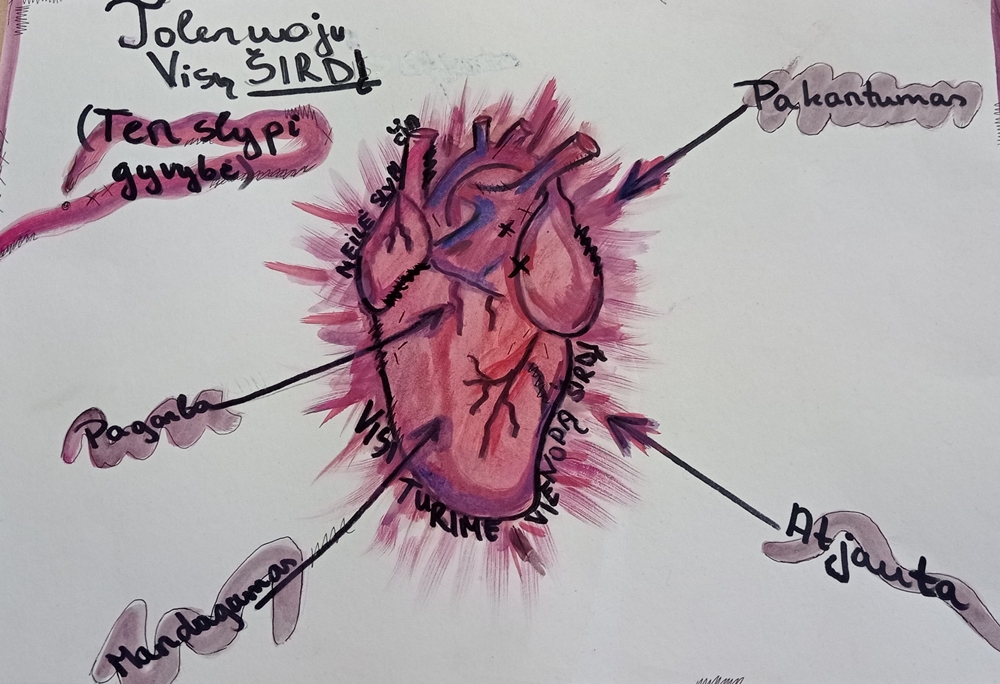 Toleruoju
Visų ŠIRDĮ
(Ten slypi
gyvybė)
Pakantumas
MEILĖ SLYPI
Pagarba
VISI TURIME VIENODĄ ŠIRDĮ
Atjauta
Mandagumas